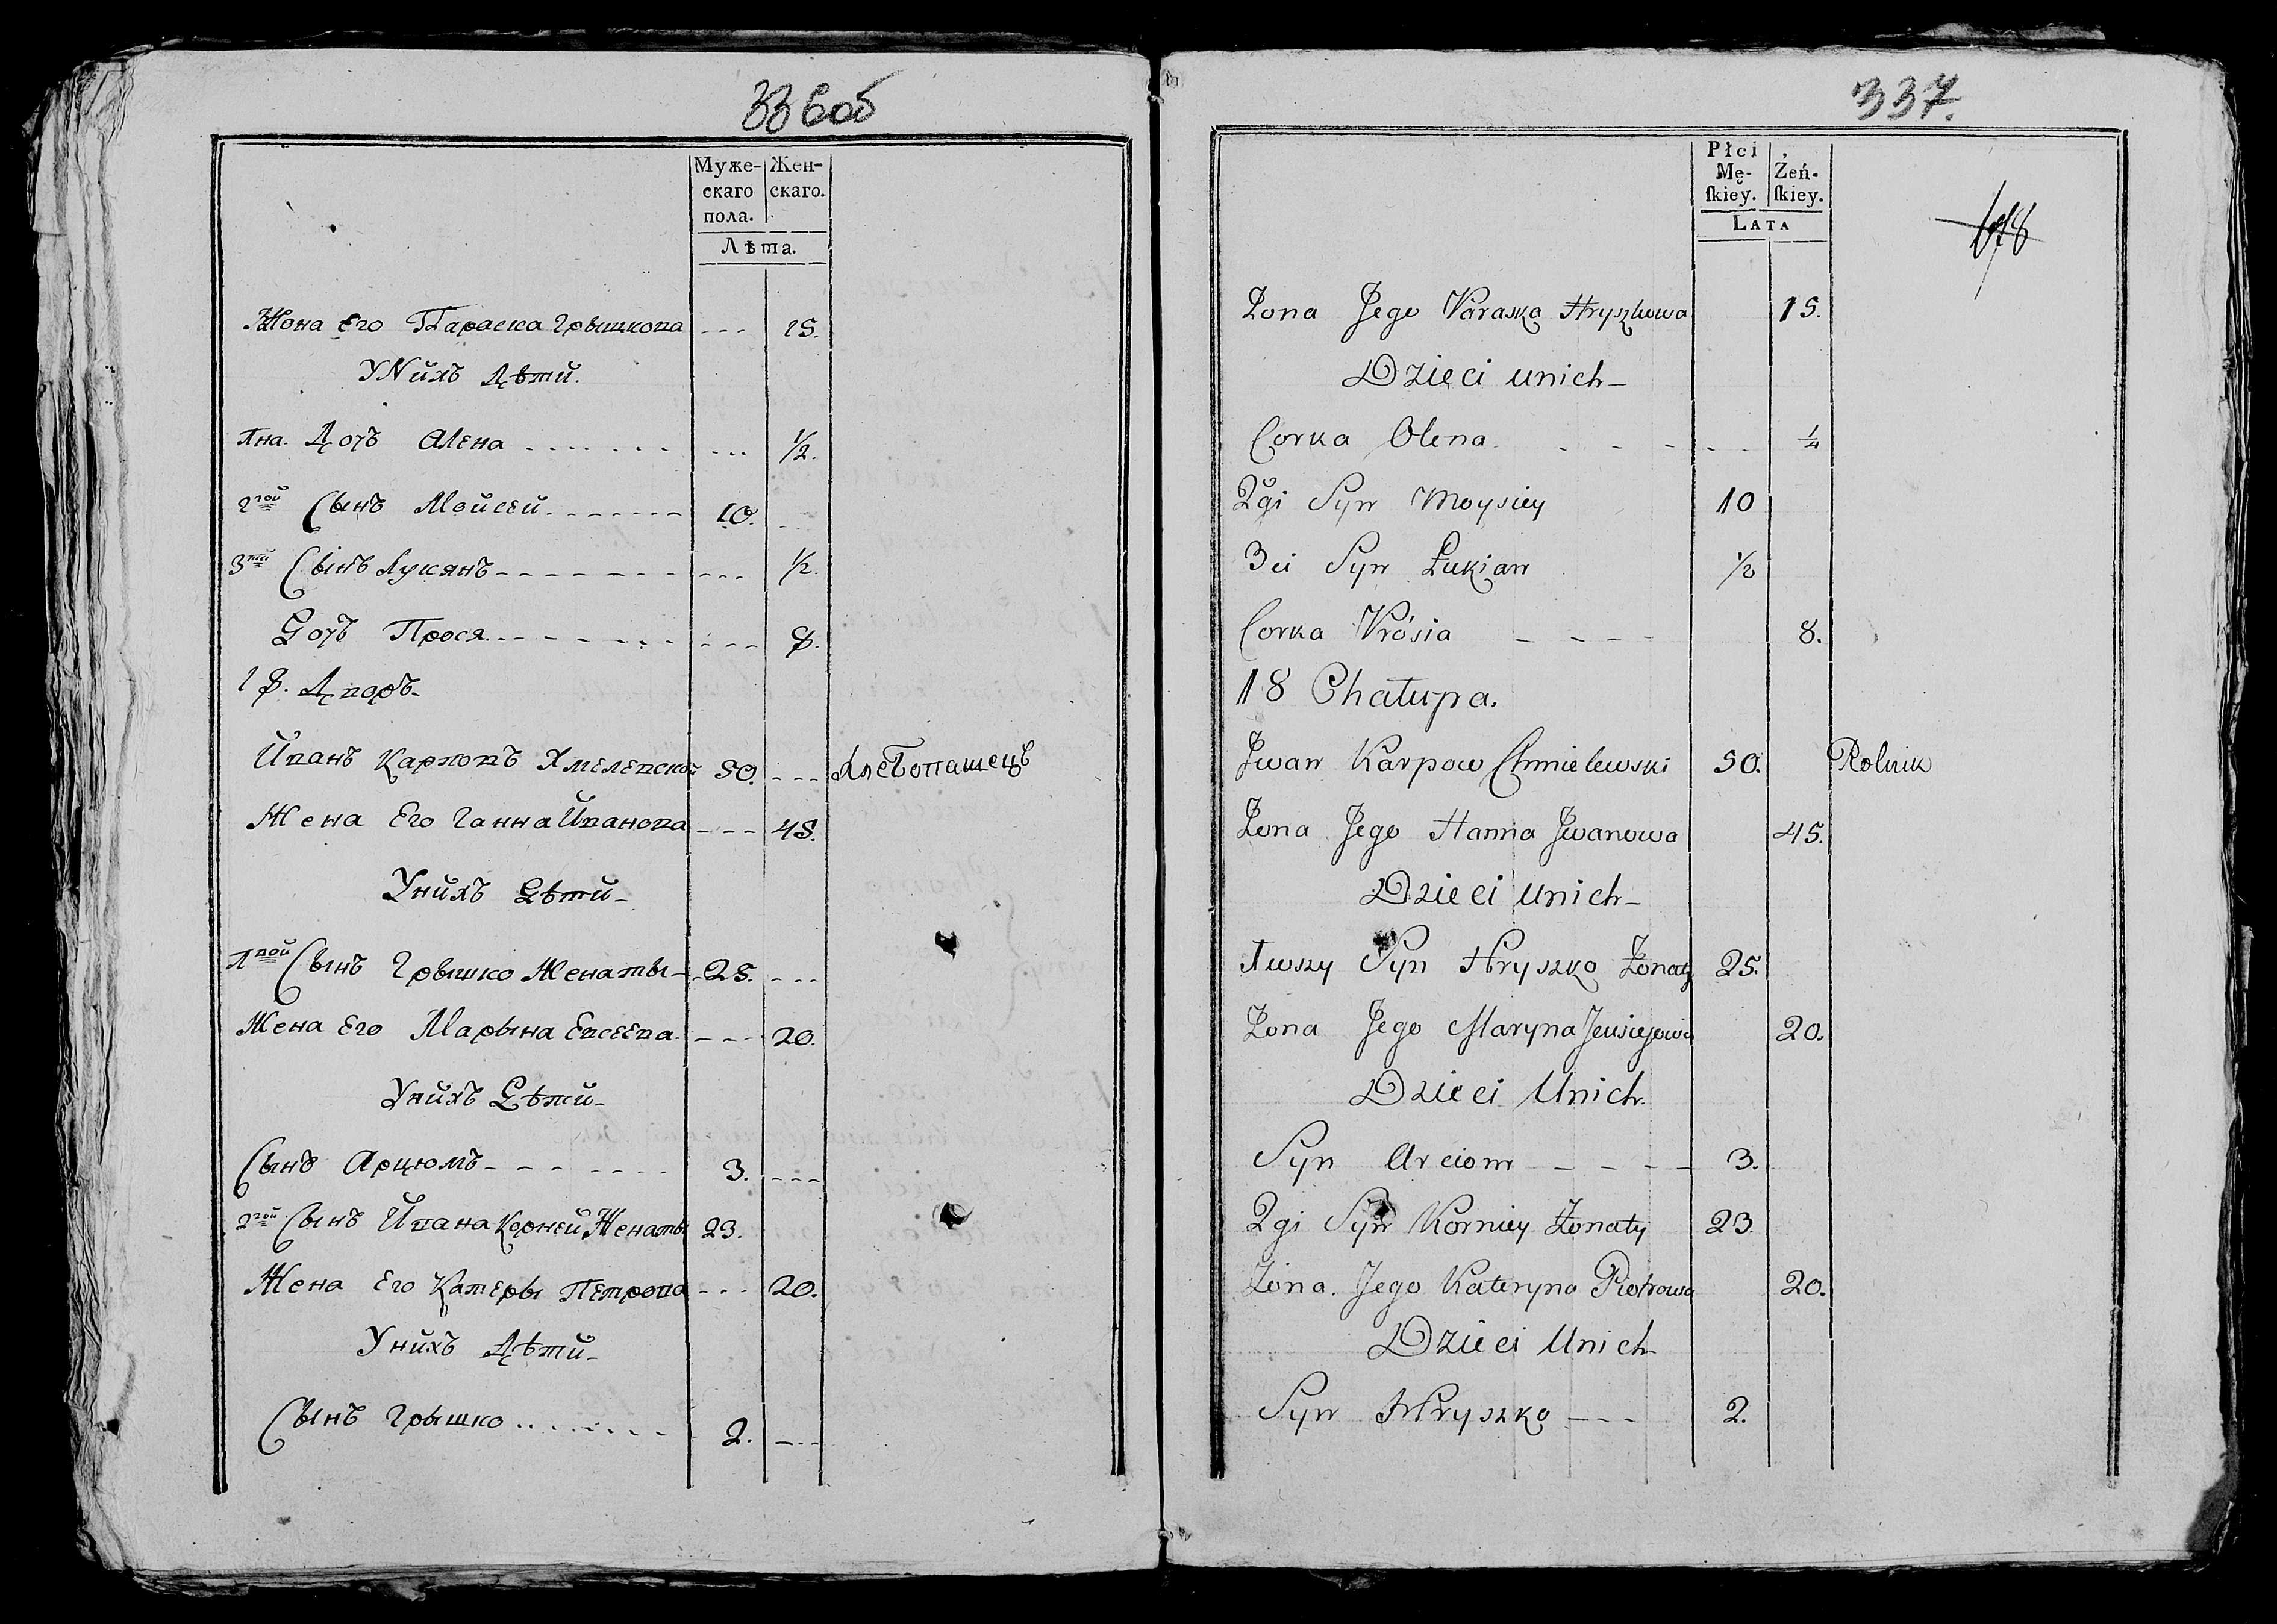 336об
Муже- Жен-
скаго скаго.
пола.
Лѣта.
Жона Его Параска Грышкова - - - 15.
У Нихъ Дѣти.
1на. Дочъ Алена - - - ½.
2гой Сынъ Мойсей 10. - - -
3тй Сынъ Лукянъ - - - ½.
Дочъ Прося - - - 8.
18. Дворъ
Иванъ Карповъ Хмелевской 50. - - - Хлебопашецъ
Жена Его Ганна Иванова - - - 45.
У нихъ Дѣти
1вой Сынъ Грышко Женаты 25. - - -
Жена Его Марына Евсеева - - - 20.
У нихъ Дѣти
Сынъ Арцюмъ 3. - - -
2гой Сынъ Ивана Корней Женаты 23.
Жена Его Катеры Петрова - - - 20.
У нихъ Дѣти
Сынъ Грышко 2. - - -
337.
Płci
Mę- Żeń-
ſkiey. ſkiey.
LATA
Zona Jego Paraska Hryszkowa 15.
Dzieci unich
Corka Olena ¼
2gi Syn Moysiey 10
3ci Syn Łukian ½
Corka Prosia 8.
18 Chałupa.
Jwan Karpow Chmielewski 50. Rolnik
Zona Jego Hanna Jwanowa 45.
Dzieci unich
1wszy Syn Hryszko Zonaty 25.
Zona Jego Maryna Jewsiejewa 20.
Dzieci Unich
Syn Arciom 3.
2gi Syn Korniey Zonaty 23
Zona Jego Kateryna Piotrowa 20.
Dzieci Unich
Syn Hryszko 2.